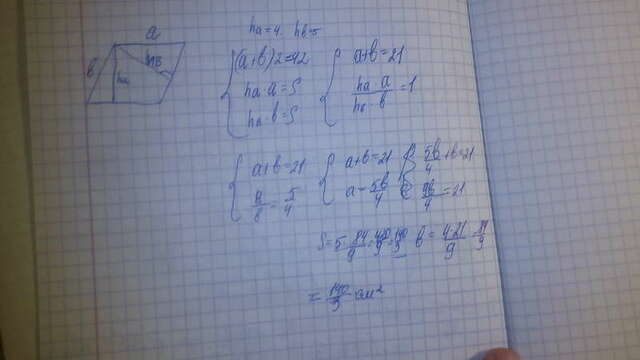 a
b
ha
hb
ha=4. hb=5
{(a+b)2=42
ha·a=S
hb·b=S
{a+b=21
ha a / hb·b =1
{a+b=21
a/b = 5/4
{a+b=21
a=5b/4
{5b/4+b=21
9b/4=21
b=4·21/9=84/9
S=5·84/9=420/9=140/3
=140/3 см²